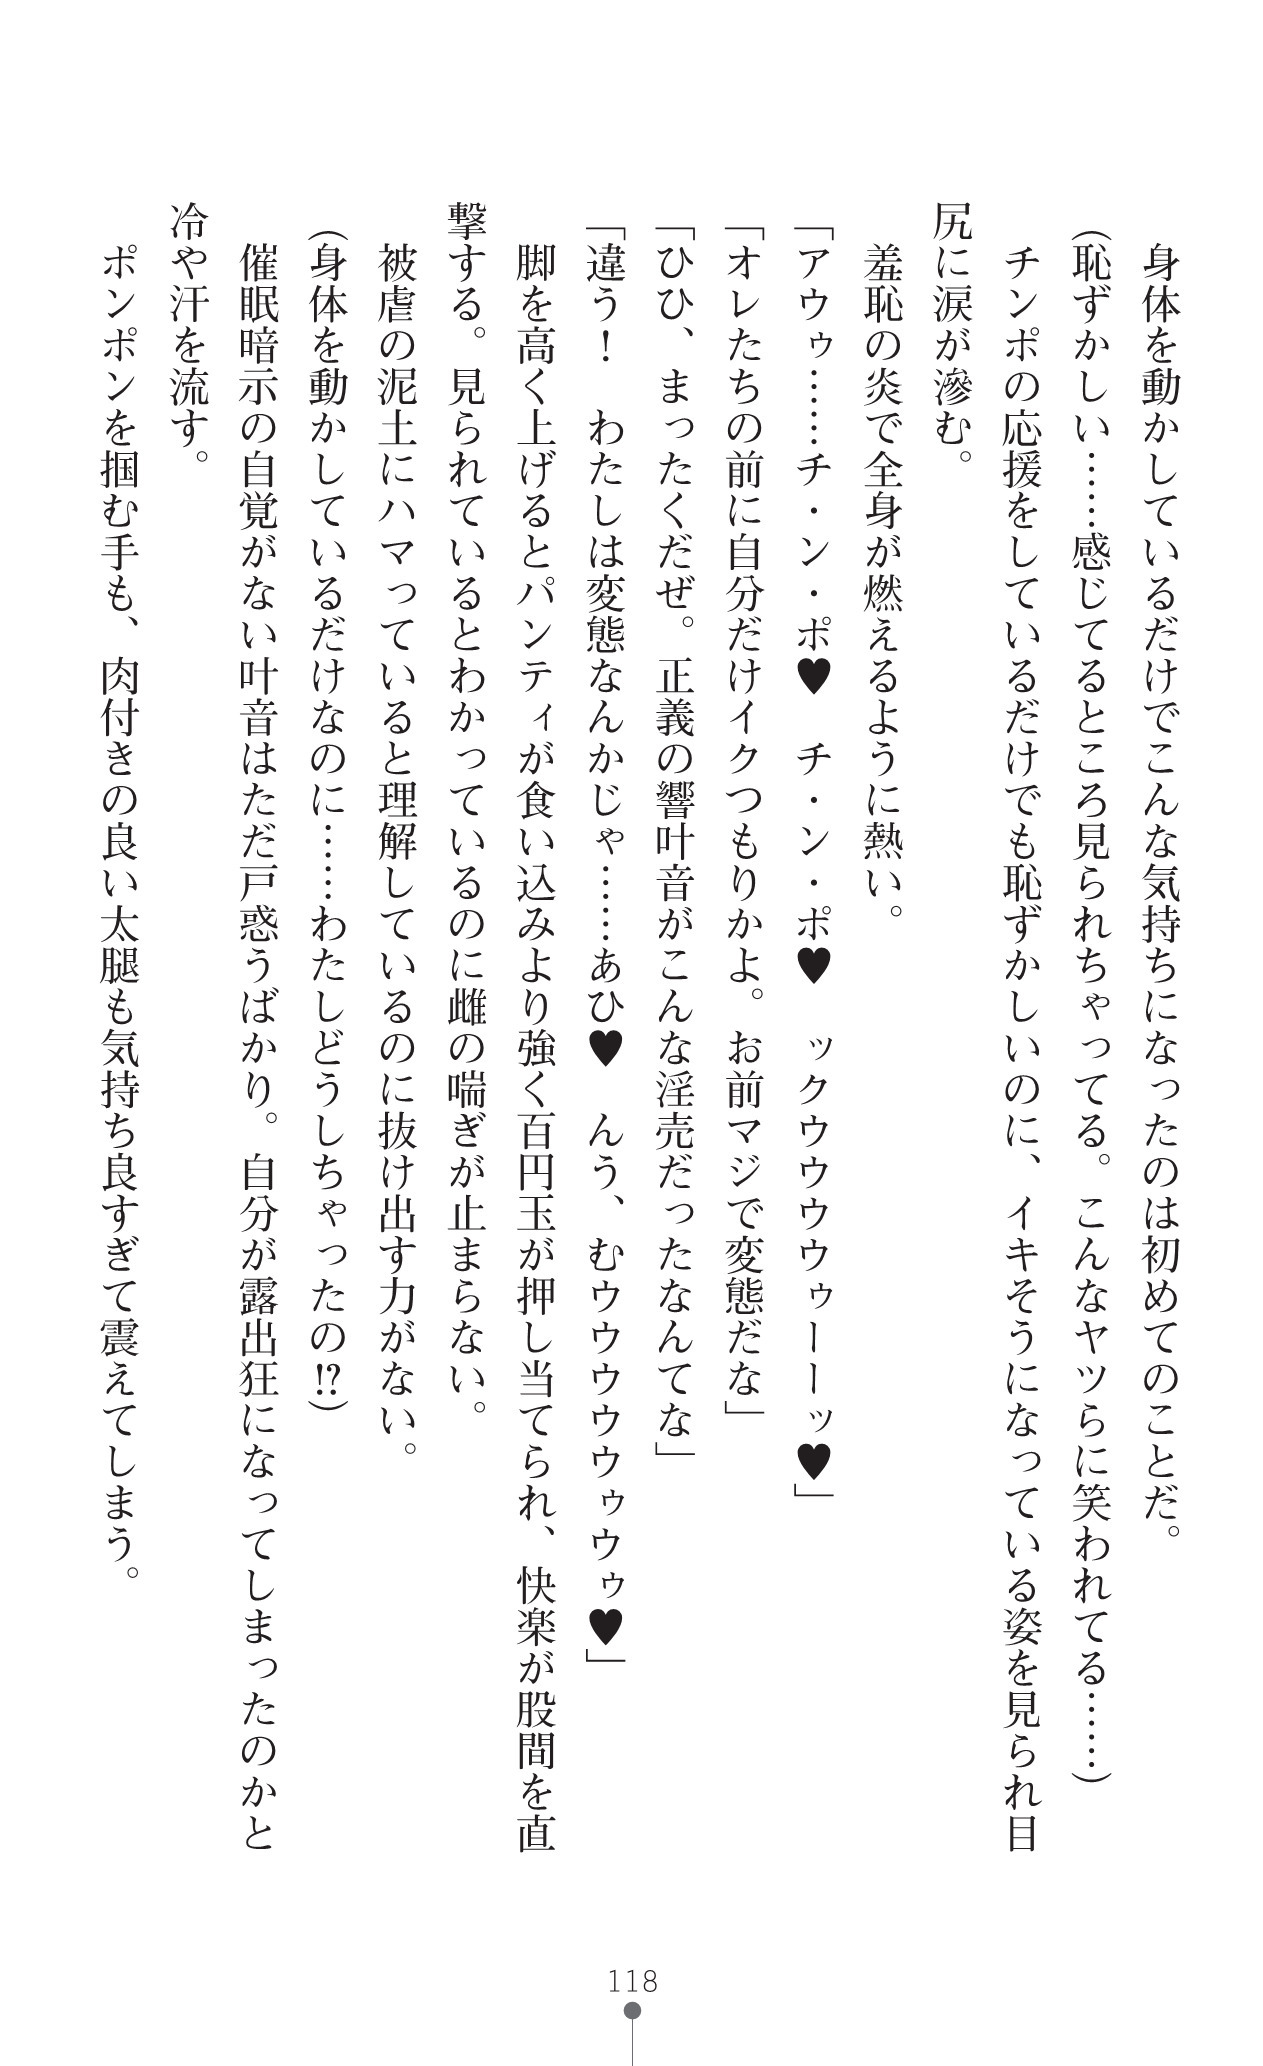 身体を動かしているだけでこんな気持ちになったのは初めてのことだ。
(恥ずかしい……感じてるところ見られちゃってる。こんなヤツらに笑われてる……)
チンポの応援をしているだけでも恥ずかしいのに、イキそうになっている姿を見られ目
尻に涙が滲む。
羞恥の炎で全身が燃えるように熱い。
「アウゥ……チ・ン・ポ♥　チ・ン・ポ♥　ックウウウウゥーーッ♥」
「オレたちの前に自分だけイクつもりかよ。お前マジで変態だな」
「ひひ、まったくだぜ。正義の響叶音がこんな淫売だったなんてな」
「違う！　わたしは変態なんかじゃ……あひ♥　んう、むウウウウウゥウゥ♥」
脚を高く上げるとパンティが食い込みより強く百円玉が押し当てられ、快楽が股間を直
撃する。見られているとわかっているのに雌の喘ぎが止まらない。
被虐の泥土にハマっていると理解しているのに抜け出す力がない。
(身体を動かしているだけなのに……わたしどうしちゃったの!?)
催眠暗示の自覚がない叶音はただ戸惑うばかり。自分が露出狂になってしまったのかと
冷や汗を流す。
ポンポンを掴む手も、肉付きの良い太腿も気持ち良すぎて震えてしまう。
118